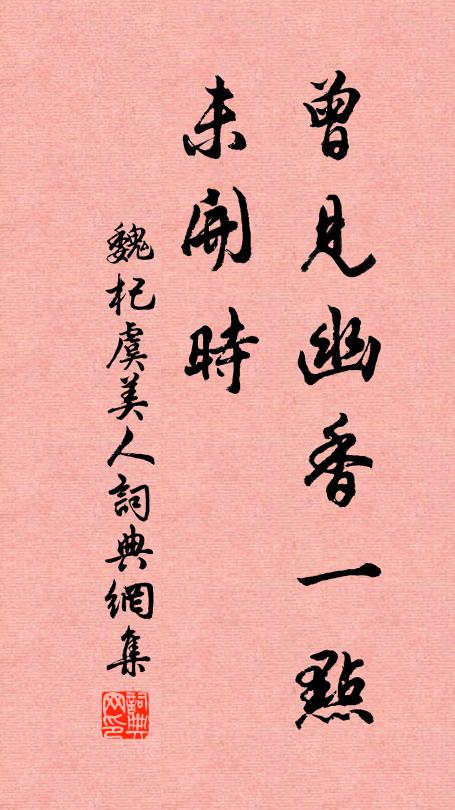 曾見幽香一點
未開時
魏杞虞美人詞典網集
詞典网印